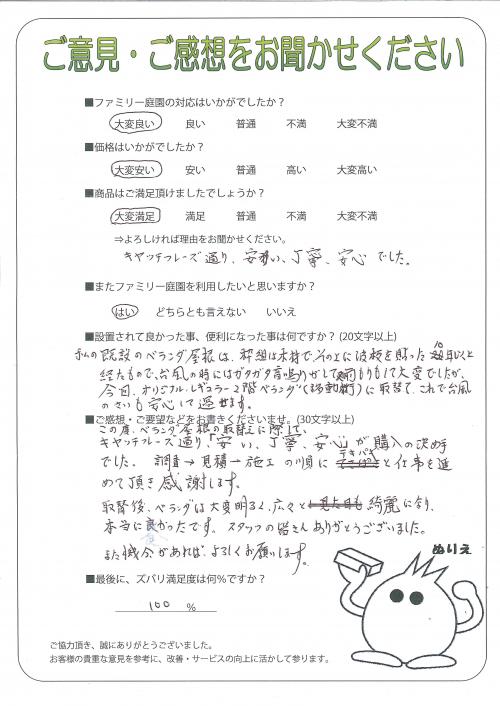 ご意見・ご感想をお聞かせください
■ファミリー庭園の対応はいかがでしたか？
大変良い 良い 普通 不満 大変不満
■価格はいかがでしたか？
大変安い 安い 普通 高い 大変高い
■商品はご満足頂けましたでしょうか？
大変満足 満足 普通 不満 大変不満
⇒よろしければ理由をお聞かせください。
キャッチフレーズ通り、安い、丁寧、安心でした。
■またファミリー庭園を利用したいと思いますか？
はい どちらとも言えない いいえ
■設置されて良かった事、便利になった事は何ですか？(20文字以上)
私の既設のベランダ屋根は、枠組は木材で、その上に波板を貼った 年以上
経たもので、台風の時にはガタガタ音鳴りがして雨もりもして大変でしたが、
今回、オリジカル レギュラー2階ベランダ に取替て、これで台風
のさいも安心して過せます。
■ご感想・ご要望などをお書きくださいませ。(30文字以上)
この度、ベランダ屋根の取替えに際して、
キャッチフレーズ通り、「安い、丁寧、安心」が購入の決め手
でした。調査→見積→施工の順にテキパキと仕事を進
めて頂き感謝します。
取替後、ベランダは大変明るく、広々と 綺麗になり、
本当に良かったです。スタッフの皆さんありがとうございました。
また機会があれば、よろしくお願いします。
ぬりえ
■最後に、ズバリ満足度は何％ですか？
100 %
ご協力頂き、誠にありがとうございました。
お客様の貴重な意見を参考に、改善・サービスの向上に活かして参ります。